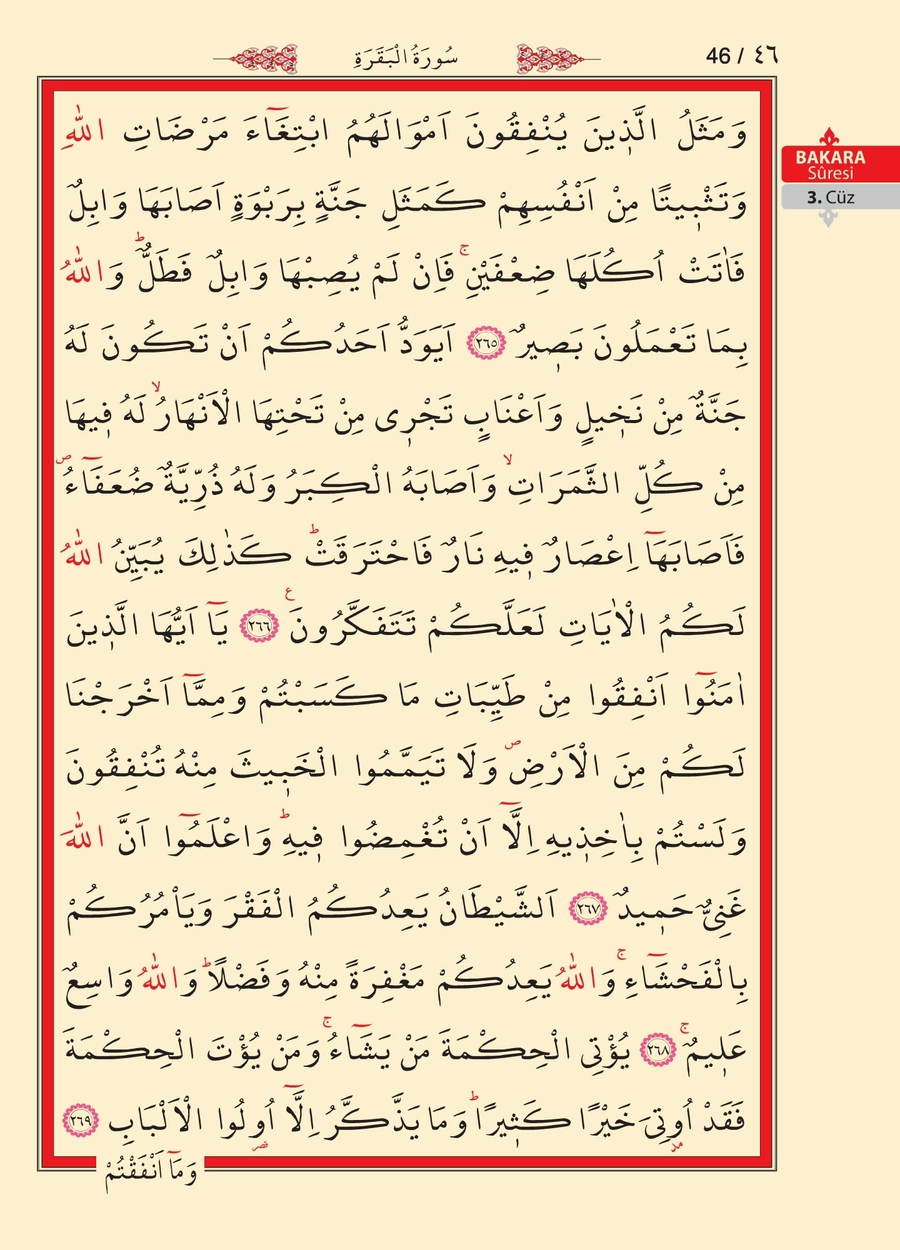 سُورَةُ الْبَقَرَةِ
46 / ٤٦
BAKARA
Sûresi
3. Cüz
وَمَثَلُ الَّذ۪ينَ يُنْفِقُونَ اَمْوَالَهُمُ ابْتِغَٓاءَ مَرْضَاتِ اللّٰهِ
وَتَثْب۪يتًا مِنْ اَنْفُسِهِمْ كَمَثَلِ جَنَّةٍ بِرَبْوَةٍ اَصَابَهَا وَابِلٌ
فَاٰتَتْ اُكُلَهَا ضِعْفَيْنِۚ فَاِنْ لَمْ يُصِبْهَا وَابِلٌ فَطَلٌّۜ وَاللّٰهُ
بِمَا تَعْمَلُونَ بَص۪يرٌ ﴿٢٦٥﴾ اَيَوَدُّ اَحَدُكُمْ اَنْ تَكُونَ لَهُ
جَنَّةٌ مِنْ نَخ۪يلٍ وَاَعْنَابٍ تَجْر۪ي مِنْ تَحْتِهَا الْاَنْهَارُۙ لَهُ ف۪يهَا
مِنْ كُلِّ الثَّمَرَاتِۙ وَاَصَابَهُ الْكِبَرُ وَلَهُ ذُرِّيَّةٌ ضُعَفَٓاءُۖ
فَاَصَابَهَٓا اِعْصَارٌ ف۪يهِ نَارٌ فَاحْتَرَقَتْۜ كَذٰلِكَ يُبَيِّنُ اللّٰهُ
لَكُمُ الْاٰيَاتِ لَعَلَّكُمْ تَتَفَكَّرُونَ۟ ﴿٢٦٦﴾ يَٓا اَيُّهَا الَّذ۪ينَ
اٰمَنُٓوا اَنْفِقُوا مِنْ طَيِّبَاتِ مَا كَسَبْتُمْ وَمِمَّٓا اَخْرَجْنَا
لَكُمْ مِنَ الْاَرْضِۖ وَلَا تَيَمَّمُوا الْخَب۪يثَ مِنْهُ تُنْفِقُونَ
وَلَسْتُمْ بِاٰخِذ۪يهِ اِلَّٓا اَنْ تُغْمِضُوا ف۪يهِۜ وَاعْلَمُٓوا اَنَّ اللّٰهَ
غَنِيٌّ حَم۪يدٌ ﴿٢٦٧﴾ اَلشَّيْطَانُ يَعِدُكُمُ الْفَقْرَ وَيَأْمُرُكُمْ
بِالْفَحْشَٓاءِۚ وَاللّٰهُ يَعِدُكُمْ مَغْفِرَةً مِنْهُ وَفَضْلًاۜ وَاللّٰهُ وَاسِعٌ
عَل۪يمٌۚ ﴿٢٦٨﴾ يُؤْتِي الْحِكْمَةَ مَنْ يَشَٓاءُۚ وَمَنْ يُؤْتَ الْحِكْمَةَ
فَقَدْ اُو۫تِيَ خَيْرًا كَث۪يرًاۜ وَمَا يَذَّكَّرُ اِلَّٓا اُو۬لُوا الْاَلْبَابِ ﴿٢٦٩﴾
وَمَٓا اَنْفَقْتُمْ